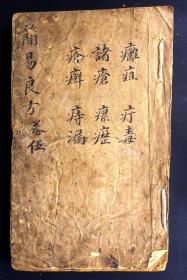 癰疽 疔毒
諸瘡 瘰癧
疥癬 痔漏
簡易良方卷伍